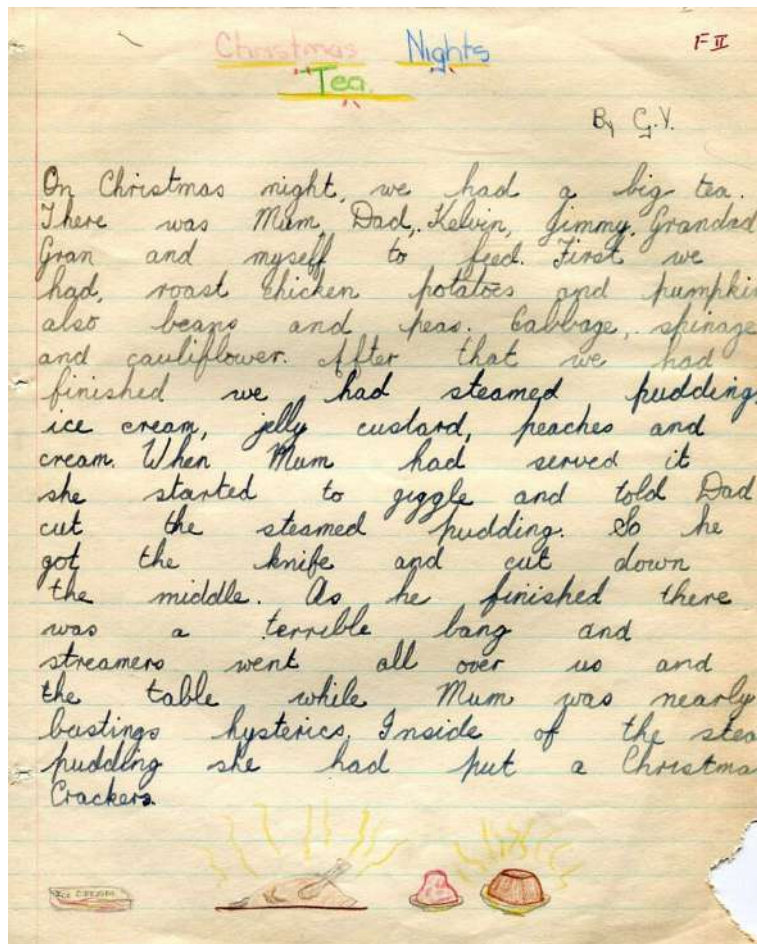 Christmas Nights
F II
Tea.
By G.Y.
On Christmas night, we had a big tea.
There was Mum, Dad, Kelvin, Jimmy, Grandad
Gran and myself to feed. First we
had, roast chicken potatoes and pumpkin
also beans and peas. Cabbage, spinage
and cauliflower. After that we had
finished we had steamed pudding,
ice cream, jelly custard, peaches and
cream. When Mum had served it
she started to giggle and told Dad
cut the steamed pudding. So he
got the knife and cut down
the middle. As he finished there
was a terrible bang and
streamers went all over us and
the table while Mum was nearly
bastings hysterics. Inside of the stea
pudding she had put a Christma
Crackers.
ICE CREAM